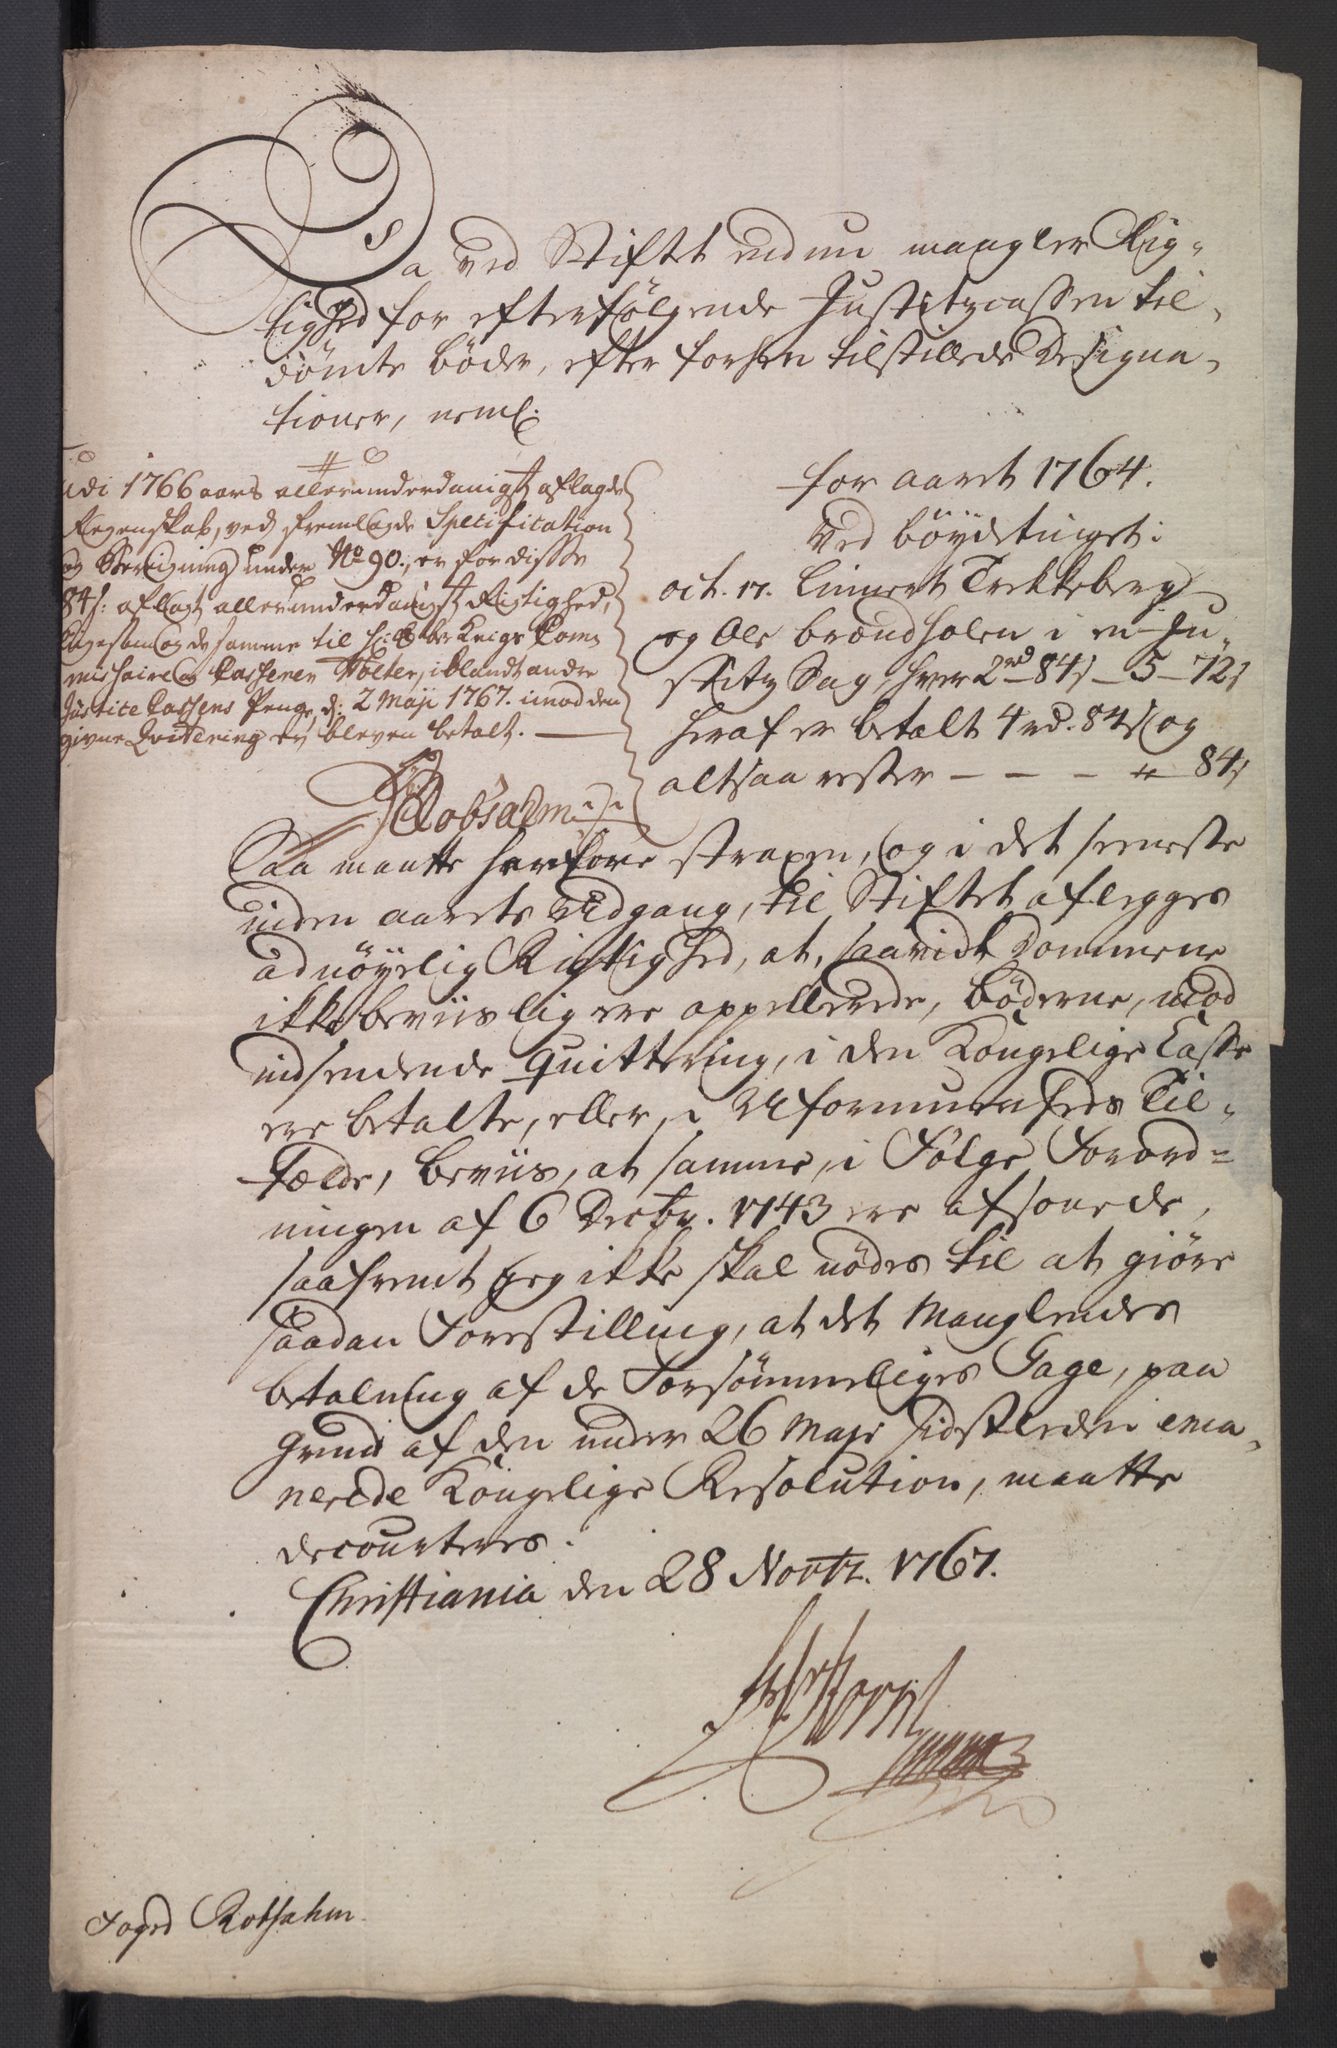 Da ved Stiftet endnu mangler Rig-
tighed for efterfölgende Justitzcassen til-
dömte böder, efter forhen tilstillede Designa-
tioner, neml.
for aaret 1764.
Ved böydetinget:
oct. 17. Linnert Trekkeberg
og Ole brændholen i en Ju-
stitz Sag, hver 2rd 84s – 5 – 72s
heraf er betalt 4rd. 84s og
altsaa rester – – – " 84s
Udi 1766 aars allerunderdanigst aflagde
Regenskab, ved fremlagde Specification
og Beregning under No 90, er for disse
84s: aflagt allerunderdanigst Rigtighed,
ligesom og de samme til Hr. Ober Krigs Kom-
missaire og Casserer Holter, iblandt andre
Justice Cassens Penge, d: 2 Maji 1767. imod den
givne Qvittering er bleven betalt.
Robsahm
Saa maatte herfore straxen, og i det seeneste
inden aarets Udgang, til Stiftet aflegges
adnöyelig Rigtighed, at, saavidt Dommene
ikke beviislig ere appellerede, böderne, mod
indsendende Quittering, i den Kongelige Casse
ere betalte, eller, i Uformuenheds Til-
fælde, beviis, at samme, i Fölge Forord-
ningen af 6 Decbr. 1743 ere afsonede,
saafremt jeg ikke skal nödes til at giöre
saadan Forestilling, at det Manglendes
betalning af de Forsömmeliges Gage, paa
Grund af den under 26 Maji sidstleden ema-
nerede Kongelige Resolution, maatte
decourteres.
Christiania den 28 Novbr. 1767.
Storm
Foged Robsahm.